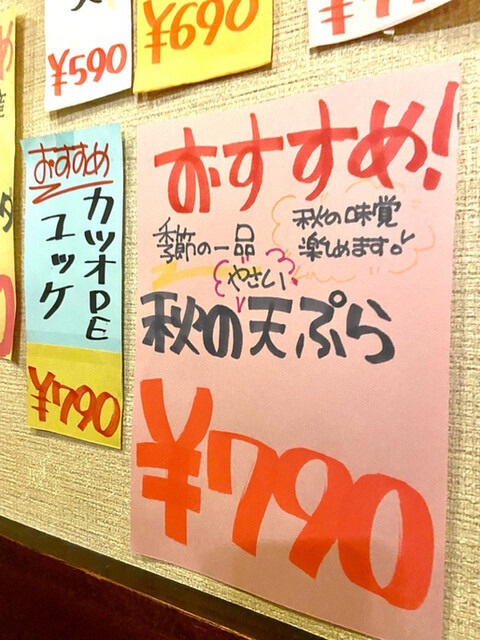 ¥590
¥690
おすすめ
カツオDE
ユッケ
¥790
おすすめ!
季節の一品
秋の味覚
楽しめます。
やさい
秋の天ぷら
¥790